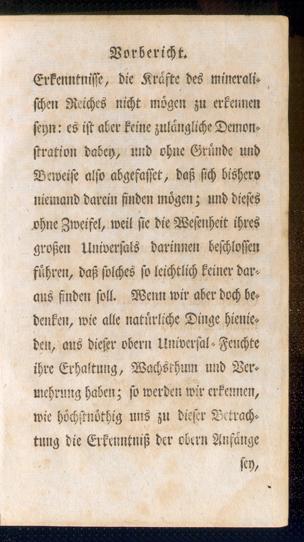 Vorbericht.
Erkenntnisse, die Kräfte des minerali-
schen Reiches nicht mögen zu erkennen
seyn: es ist aber keine zulängliche Demon-
stration dabey, und ohne Gründe und
Beweise also abgefasset, daß sich bishero
niemand darein finden mögen; und dieses
ohne Zweifel, weil sie die Wesenheit ihres
großen Universals darinnen beschlossen
führen, daß solches so leichtlich keiner dar-
aus finden soll. Wenn wir aber doch be-
denken, wie alle natürliche Dinge hienie-
den, aus dieser obern Universal-Feuchte
ihre Erhaltung, Wachsthum und Ver-
mehrung haben; so werden wir erkennen,
wie höchstnöthig uns zu dieser Betrach-
tung die Erkenntniß der obern Anfänge
sey,